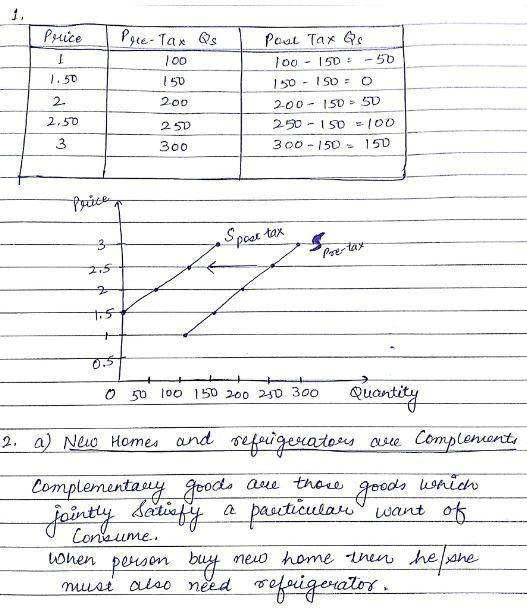 1.
Price Pre-Tax Qs Post Tax Qs
1 100 100 - 150 = -50
1.50 150 150 - 150 = 0
2 200 200 - 150 = 50
2.50 250 250 - 150 = 100
3 300 300 - 150 = 150
Price
S post tax S Pre-tax
3
2.5
2
1.5
1
0.5
0 50 100 150 200 250 300 Quantity
2. a) New Homes and refrigerators are Complements
Complementary goods are those goods which
jointly Satisfy a particular want of
Consume.
When person buy new home then he/she
must also need refrigerator.